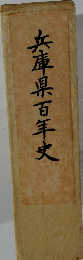 兵庫県百年史